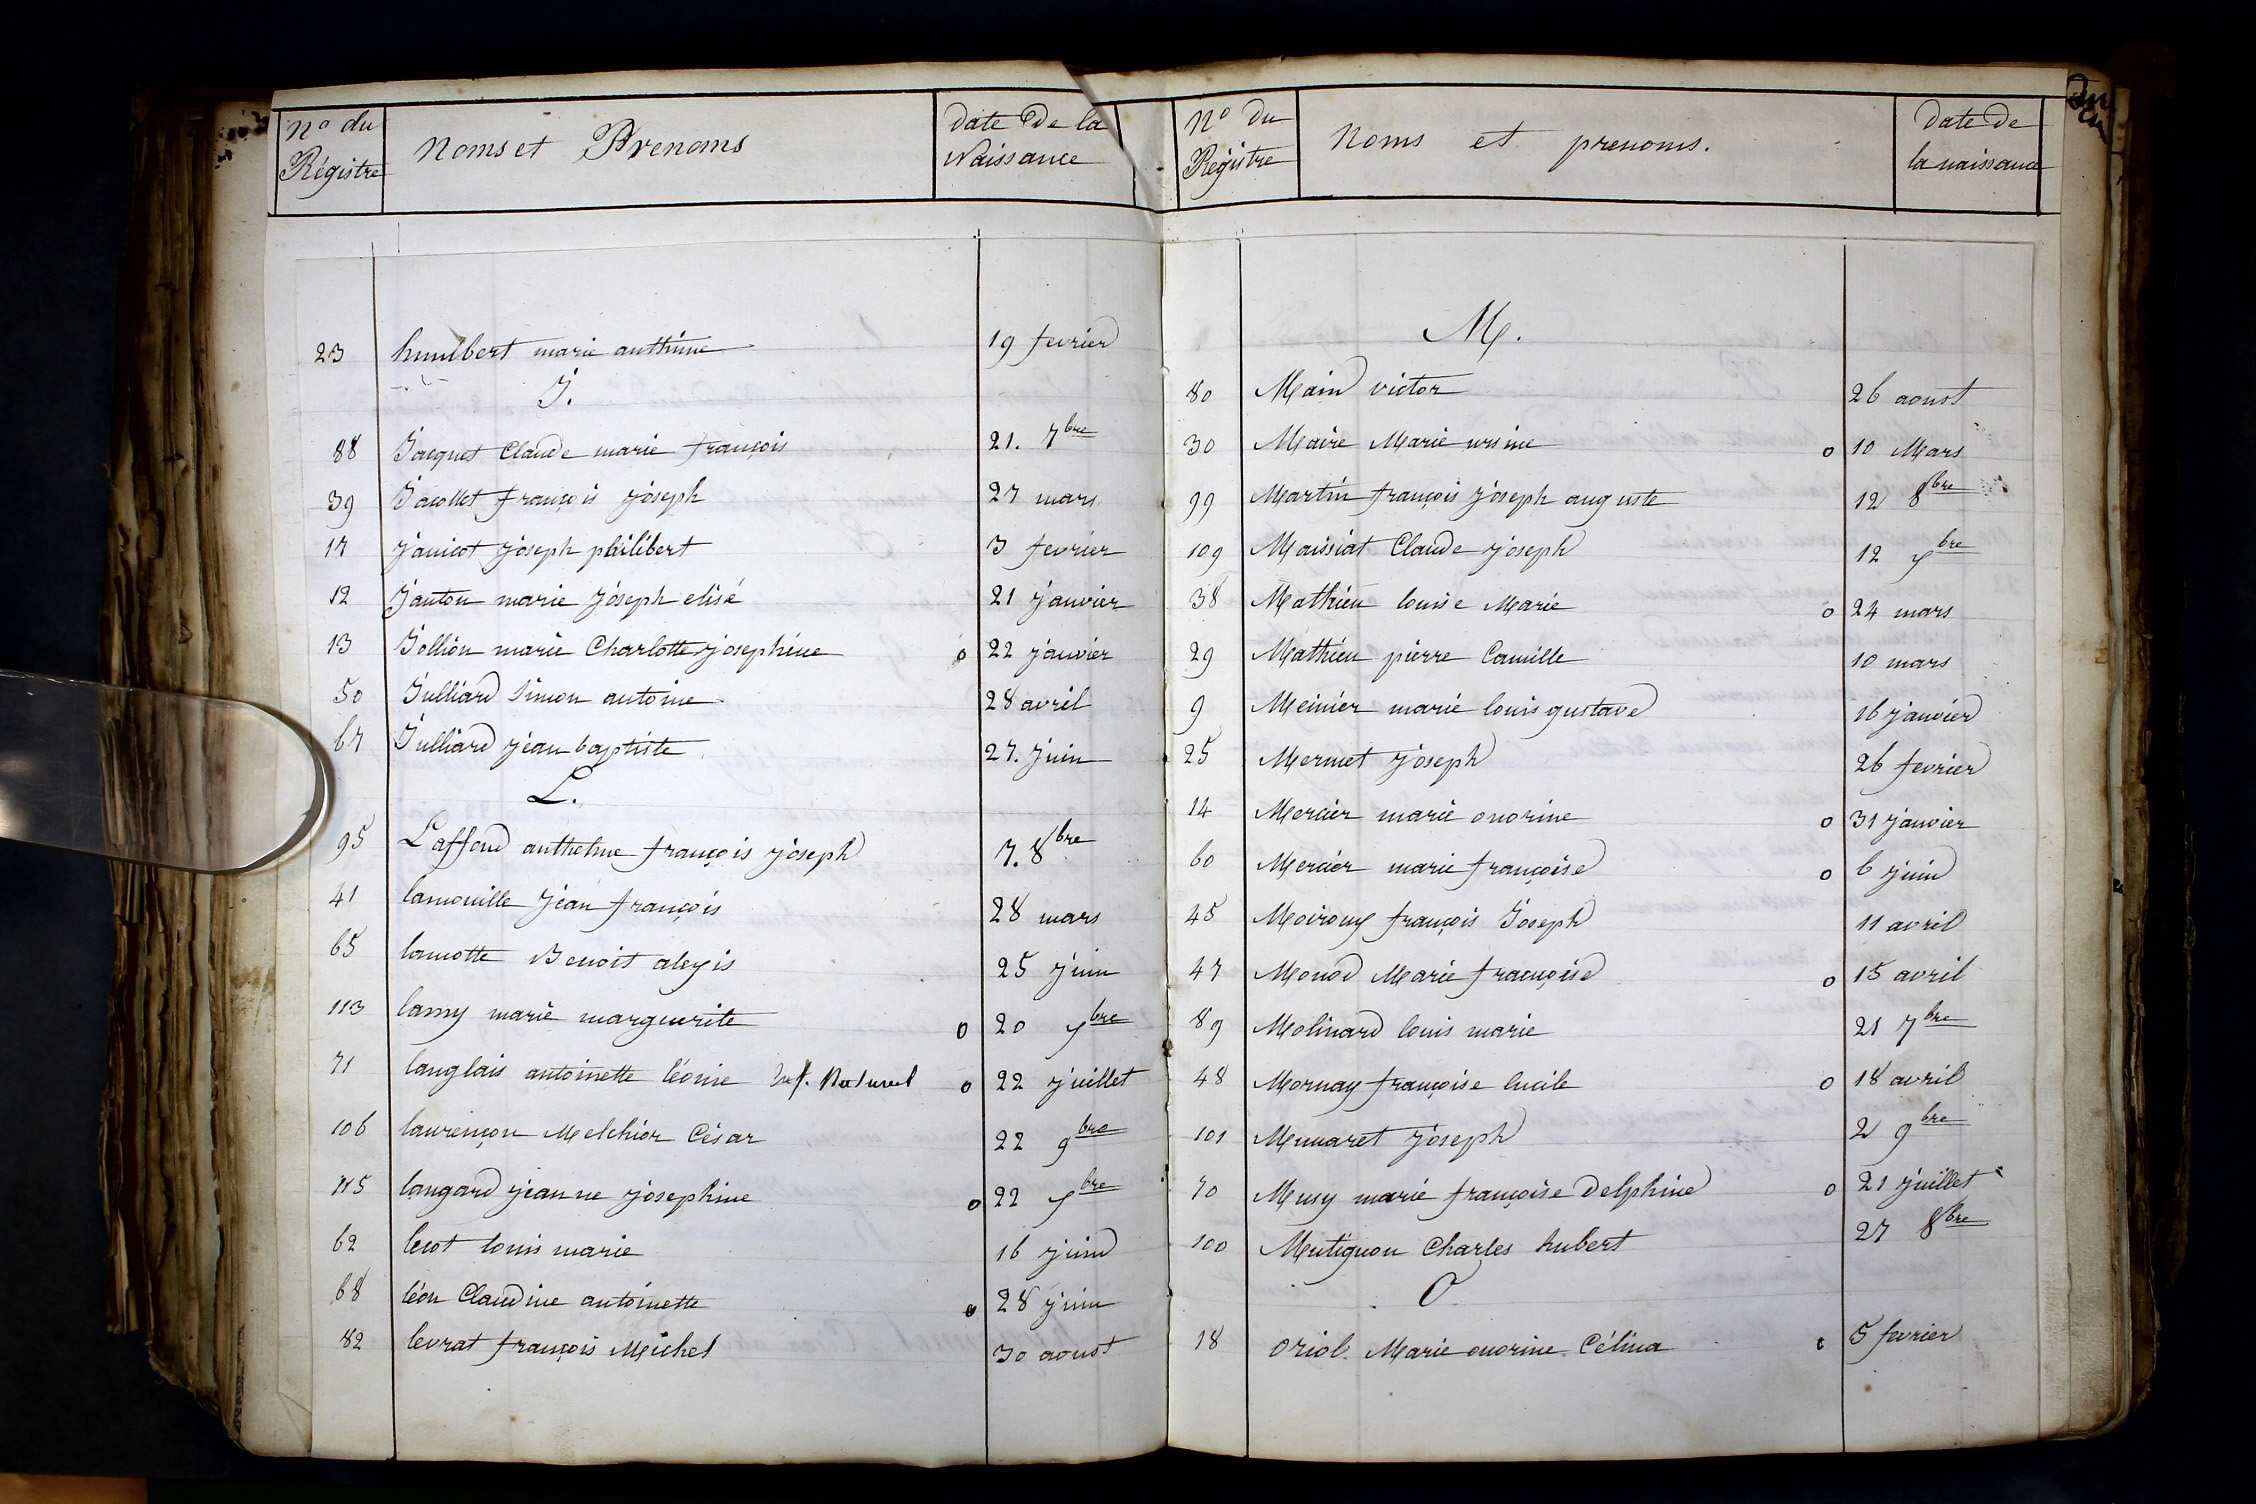 No du Régistre Noms et Prenoms date de la Naissance
23 humbert marie anthime 19 fevrier
J.
88 Jacquet Claude marie françois 21. 7bre
39 Jacollet françois joseph 27 mars
17 janicot joseph philibert 3 fevrier
12 Janton marie joseph elisé 21 janvier
13 Jollion marie Charlotte josephine o 22 janvier
50 Julliard Simon antoine 28 avril
67 Julliard jean baptiste 27. juin
L.
95 Laffond anthelme françois joseph 7. 8bre
41 lamouille jean françois 28 mars
65 lamotte Benoit alexis 25 juin
113 lamy marie marguerite o 20 xbre
71 langlais antoinette léonie Enf. Naturel o 22 juillet
106 laurençon Melchior César 22 9bre
115 laugard jeanne josephine o 22 xbre
62 lecot louis marie 16 juin
68 léon Claudine antoinette o 28 juin
82 levrat françois Michel 30 aoust
No du Régistre Noms et prenoms. Date de la naissance
M.
80 Main victor 26 aoust
30 Maire Marie ursine o 10 Mars
99 Martin françois joseph auguste 12 8bre
109 Maissiat Claude joseph 12 xbre
38 Mathieu louise Marie o 24 mars
29 Mathieu pierre Camille 10 mars
9 Meinier marie louis gustave 16 janvier
25 Mermet joseph 26 fevrier
14 Mercier marie onorine o 31 janvier
60 Mercier marie françoise o 6 juin
45 Moiroux françois Joseph 11 avril
47 Monod Marie françoise o 15 avril
89 Molinard louis marie 21 7bre
48 Mornay françoise lucile o 18 avril
101 Munaret joseph 2 9bre
70 Musy marie françoise Delphine o 21 juillet
100 Mutignon Charles hubert 27 8bre
O
18 oriol Marie onorine Célina o 5 fevrier